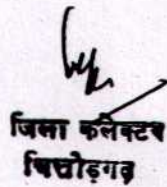 जिला कलेक्टर
चित्तोड़गढ़